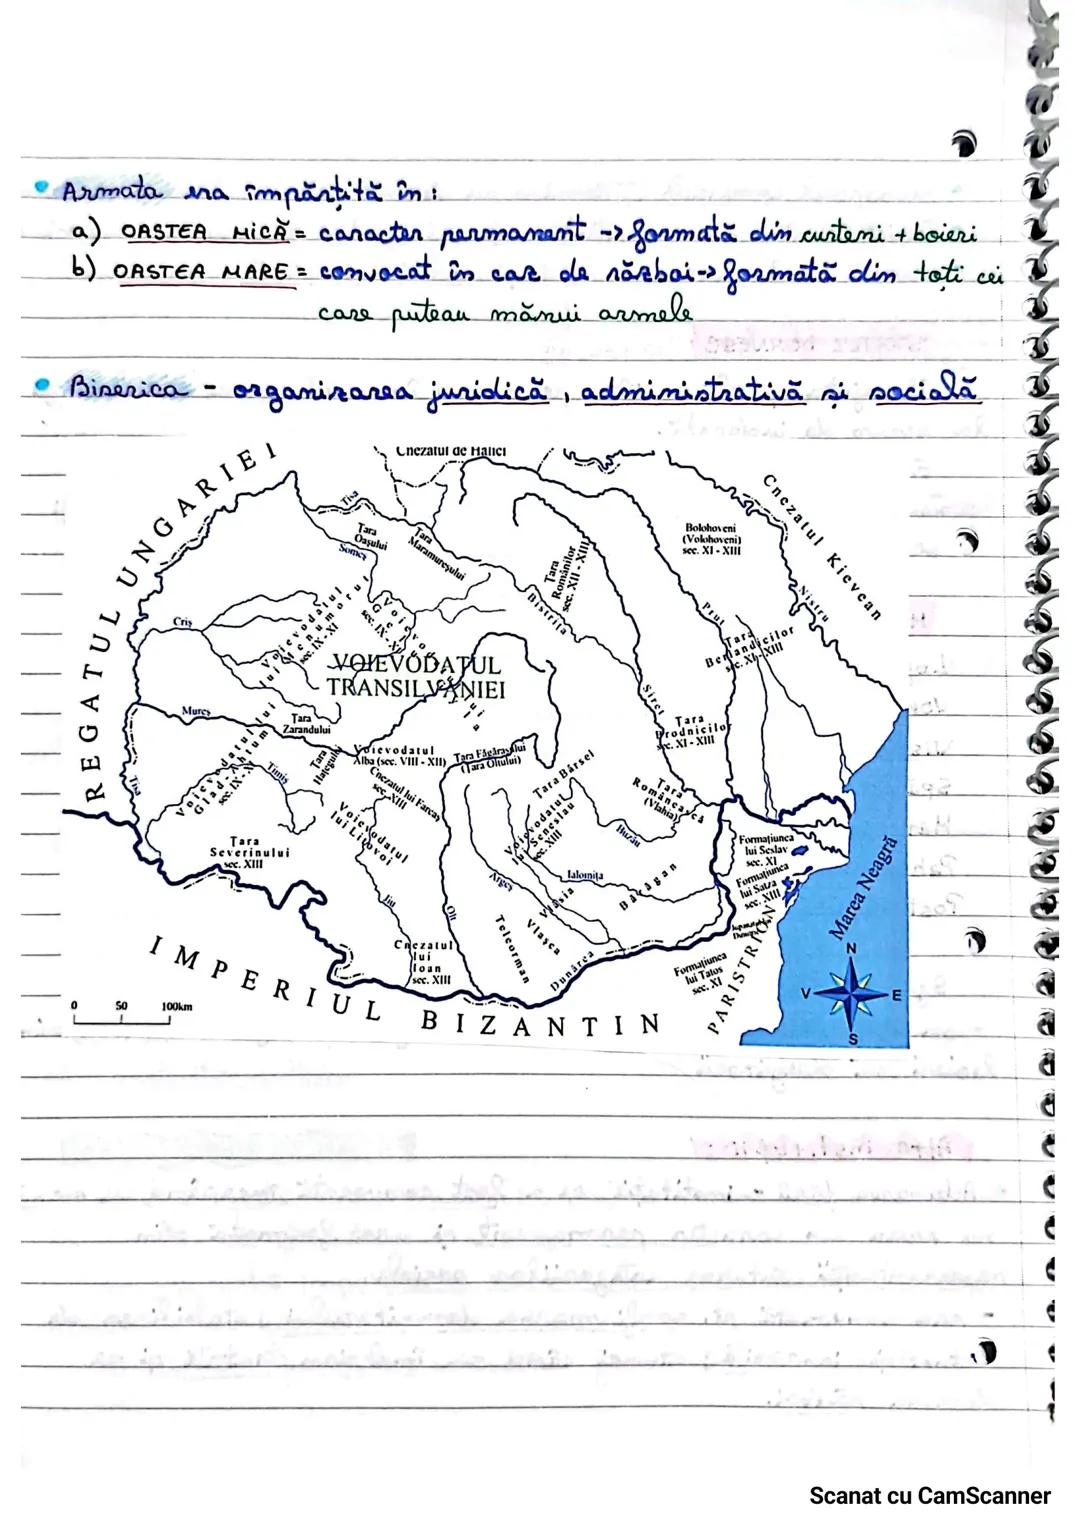 Armata era împărțită în:
a) OASTEA MICĂ = caracter permanent -> formată din curteni + boieri
b) OASTEA MARE = convocat în caz de război -> formată din toți cei
care puteau mânui armele
Biserica - organizarea juridică, administrativă și socială
Cnezatul de Halici
REGATUL UNGARIEI
Cnezatul Kievean
Tisa
Țara
Oașului
Someș
Țara
Maramureșului
Țara
Românilor
sec. XII - XIII
Bolohoveni
(Volohoveni)
sec. XI - XIII
Nistru
Prut
Bistrița
Criș
Voievodatul
lui Menumorut
sec. IX - XI
VOIEVODATUL
TRANSILVANIEI
Țara
Berladnicilor
sec. XI - XIII
Siret
Mureș
Țara
Zarandului
Țara
Brodnicilor
sec. XI - XIII
Voievodatul
Alba (sec. VIII - XII)
Țara Făgărașului
(Țara Oltului)
Țara
Hațegului
Timiș
Tisa
Cnezatul lui Farcaș
sec. XIII
Țara Bârsei
Țara
Românească
(Vlahia)
Voievodatul
lui Litovoi
Voievodatul
lui Seneslau
sec. XIII
Buzău
Țara
Severinului
sec. XIII
Formațiunea
lui Seslav
sec. XI
Formațiunea
lui Satza
sec. XIII
Marea Neagră
Argeș
Ialomița
Bărăgan
Vlăsia
Vlașca
Teleorman
Jiu
Olt
Cnezatul
lui
Ioan
sec. XIII
Dunărea
Formațiunea
lui Tatos
sec. XI
PARISTRION
IMPERIUL BIZANTIN
0 50 100km
N
V E
S
Scanat cu CamScanner